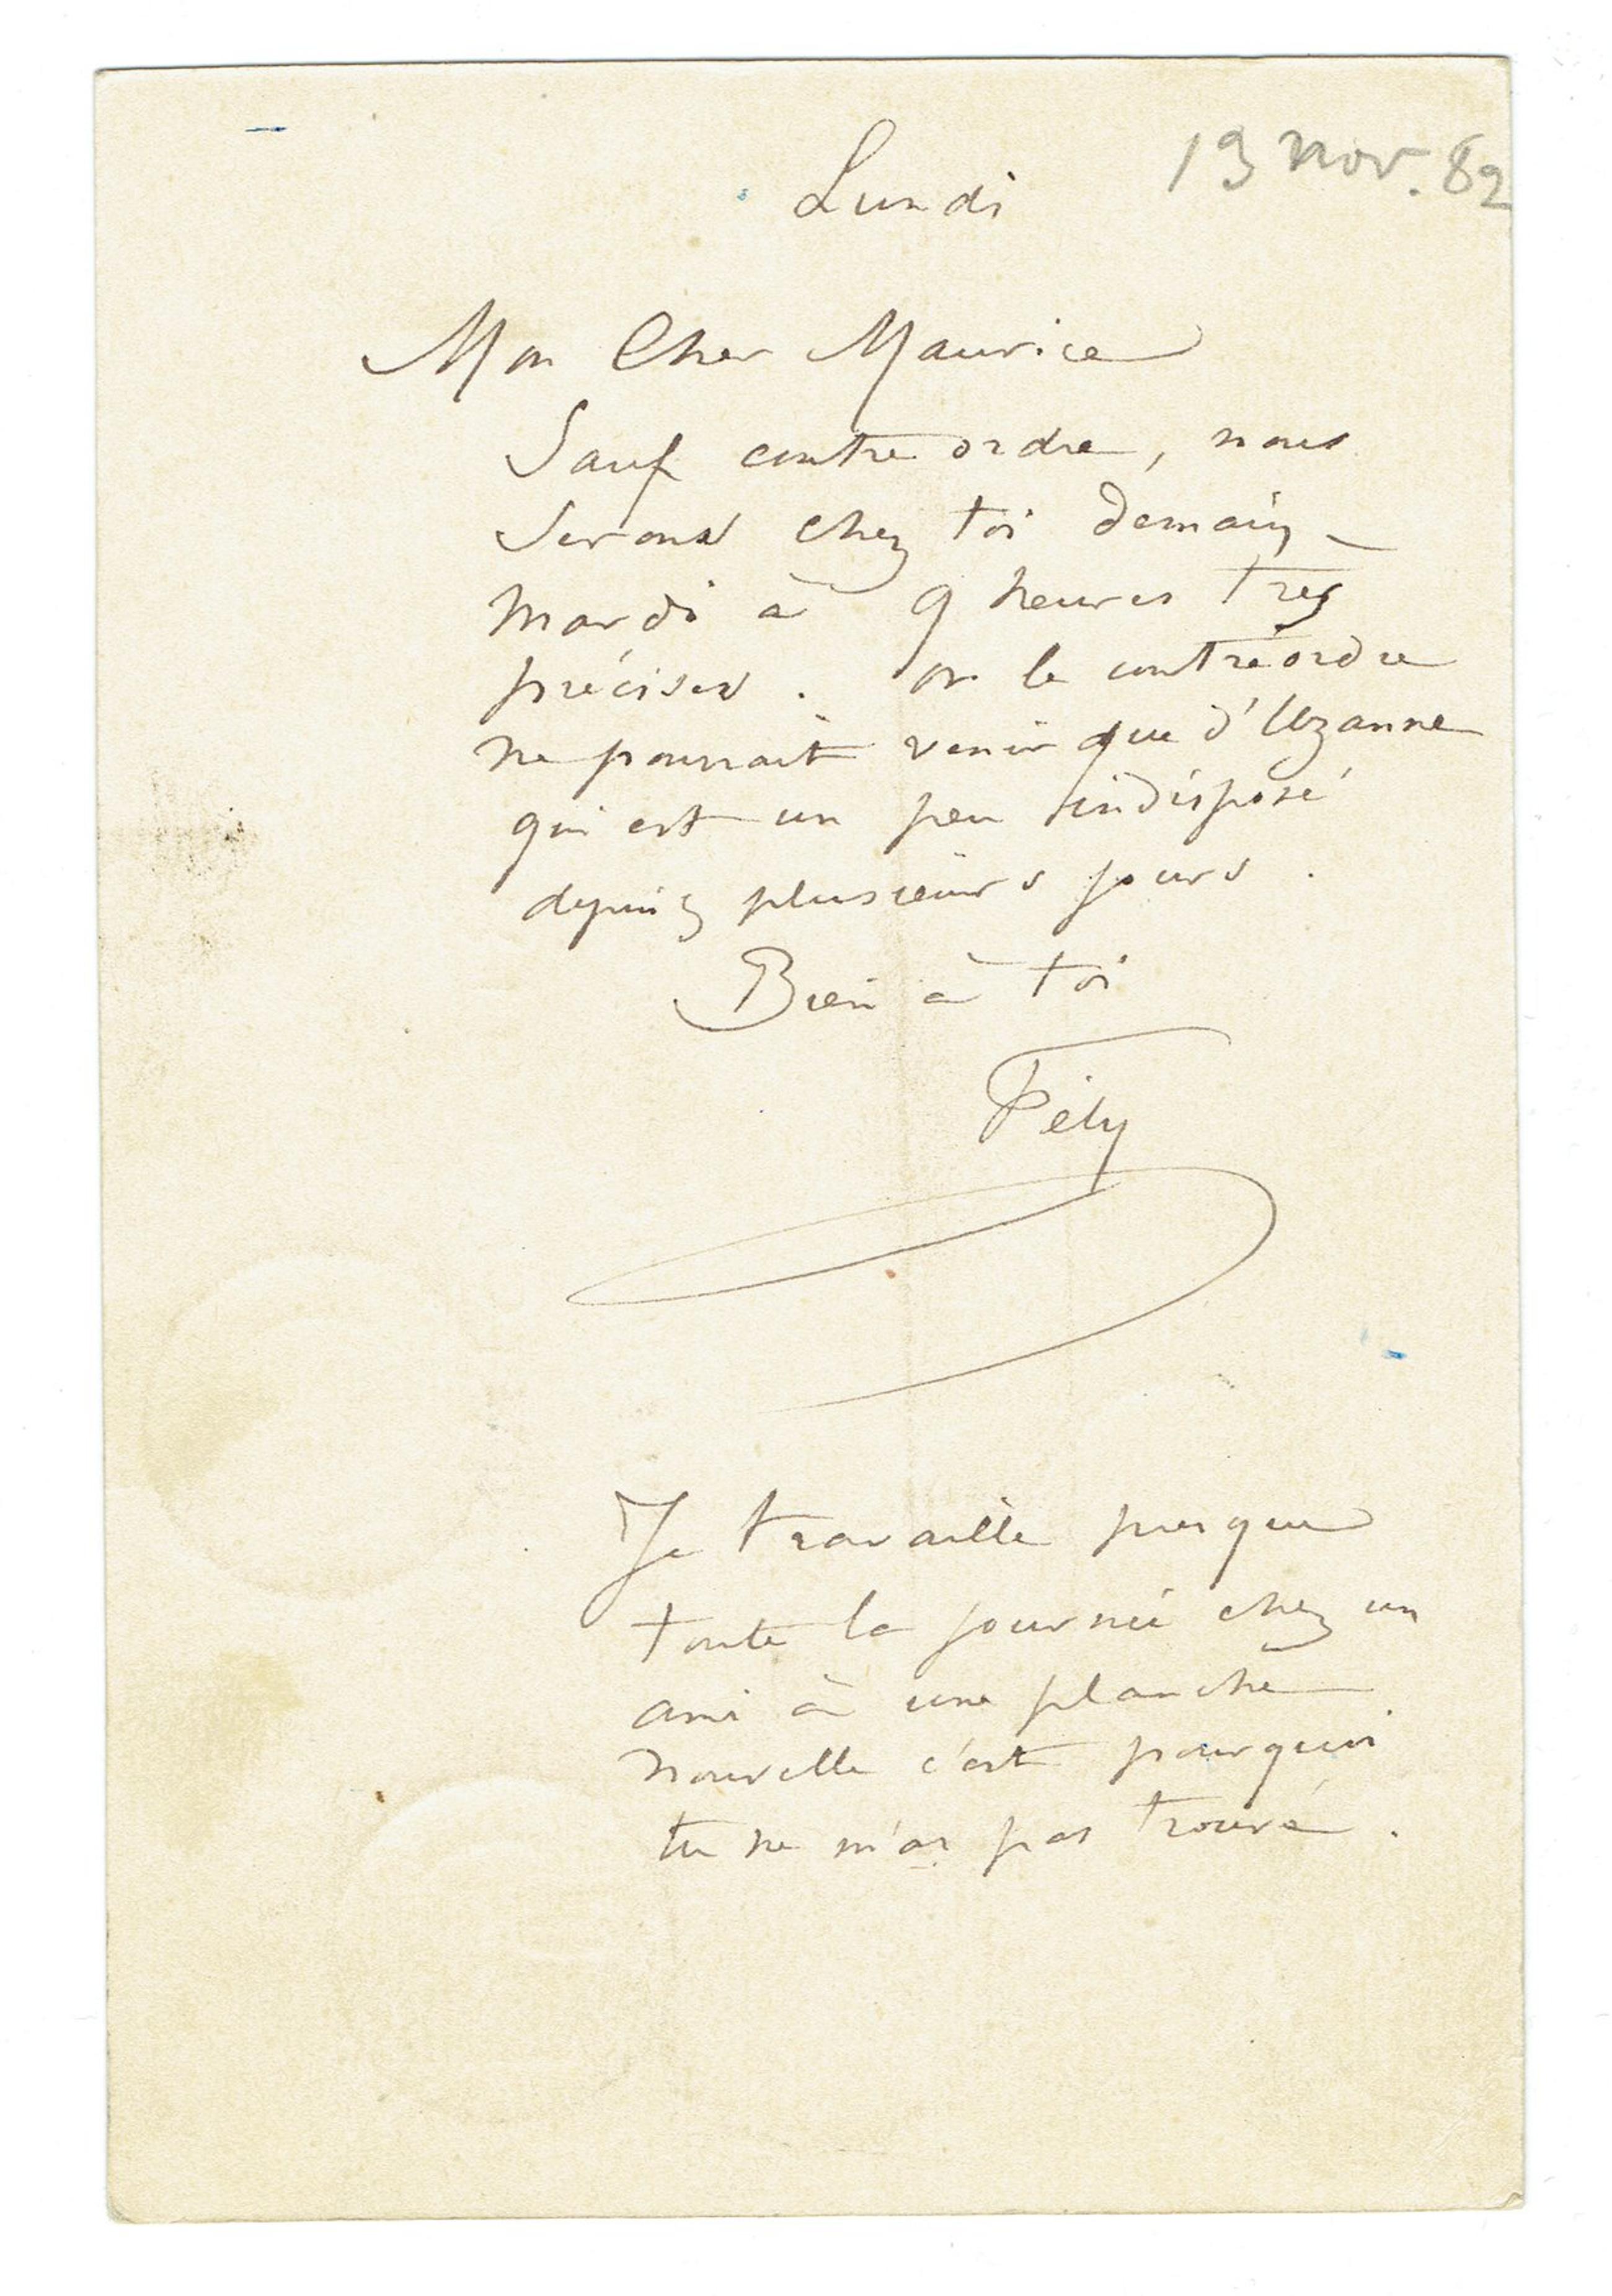 Lundi
13 nov. 82
Mon Cher Maurice
Sauf contre ordre, nous
serons chez toi demain
mardi à 9 heures tres
précises. Or le contreordre
ne pourrait venir que d'Uzanne
qui est un peu indisposé
depuis plusieurs jours.
Bien à toi
Fély
Je travaille presque
toute la journée chez un
ami à une planche
nouvelle c'est pourquoi
tu ne m'as pas trouvé.